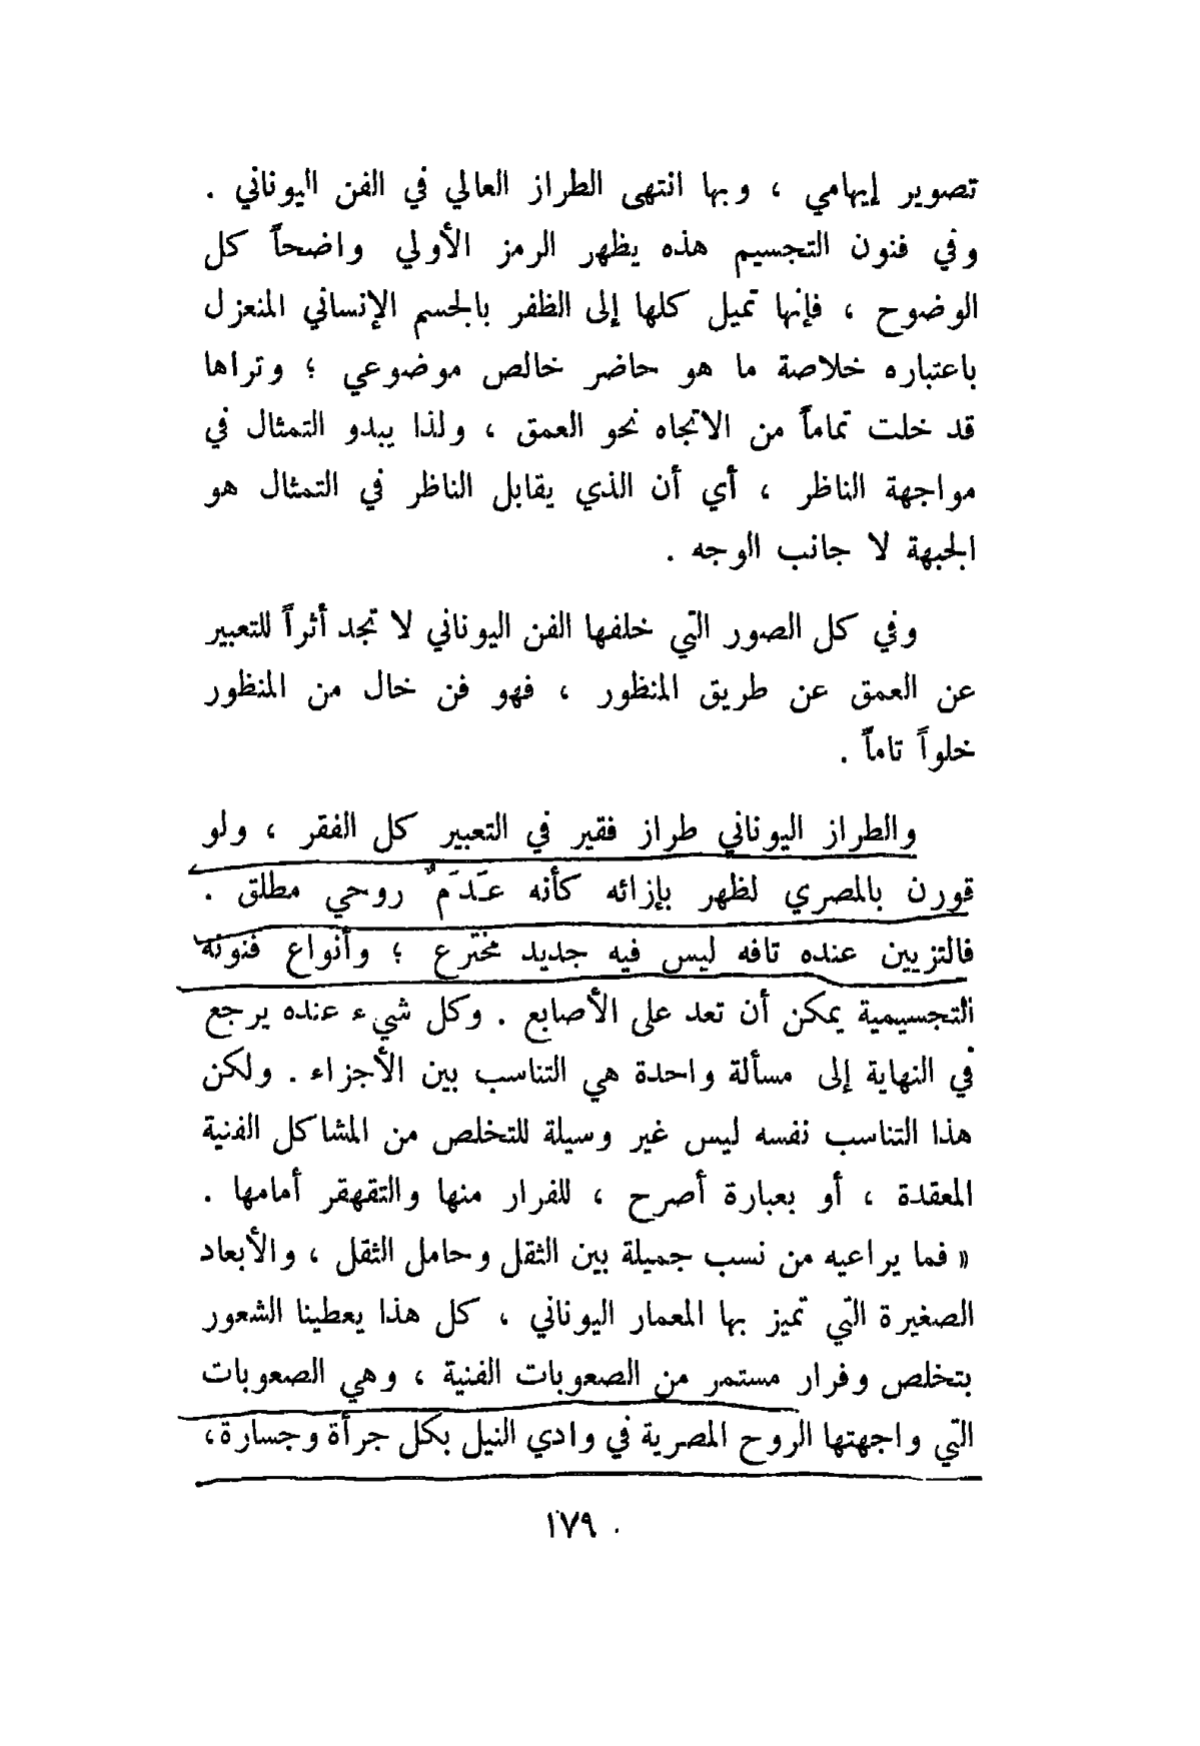 تصوير إيهامي ، وبها انتهى الطراز العالي في الفن اليوناني .
وفي فنون التجسيم هذه يظهر الرمز الأولي واضحاً كل
الوضوح ، فإنها تميل كلها إلى الظفر بالجسم الإنساني المنعزل
باعتباره خلاصة ما هو حاضر خالص موضوعي ؛ وتراها
قد خلت تماماً من الاتجاه نحو العمق ، ولذا يبدو التمثال في
مواجهة الناظر ، أي أن الذي يقابل الناظر في التمثال هو
الجبهة لا جانب الوجه .
وفي كل الصور التي خلفها الفن اليوناني لا تجد أثراً للتعبير
عن العمق عن طريق المنظور ، فهو فن خال من المنظور
خلواً تاماً .
والطراز اليوناني طراز فقير في التعبير كل الفقر ، ولو
قورن بالمصري لظهر بإزائه كأنه عَدَمٌ روحي مطلق .
فالتزيين عنده تافه ليس فيه جديد مخترع ؛ وأنواع فنونه
التجسيمية يمكن أن تعد على الأصابع . وكل شيء عنده يرجع
في النهاية إلى مسألة واحدة هي التناسب بين الأجزاء . ولكن
هذا التناسب نفسه ليس غير وسيلة للتخلص من المشاكل الفنية
المعقدة ، أو بعبارة أصرح ، للفرار منها والتقهقر أمامها .
« فما يراعيه من نسب جميلة بين الثقل وحامل الثقل ، والأبعاد
الصغيرة التي تميز بها المعمار اليوناني ، كل هذا يعطينا الشعور
بتخلص وفرار مستمر من الصعوبات الفنية ، وهي الصعوبات
التي واجهتها الروح المصرية في وادي النيل بكل جرأة وجسارة،
١٧٩